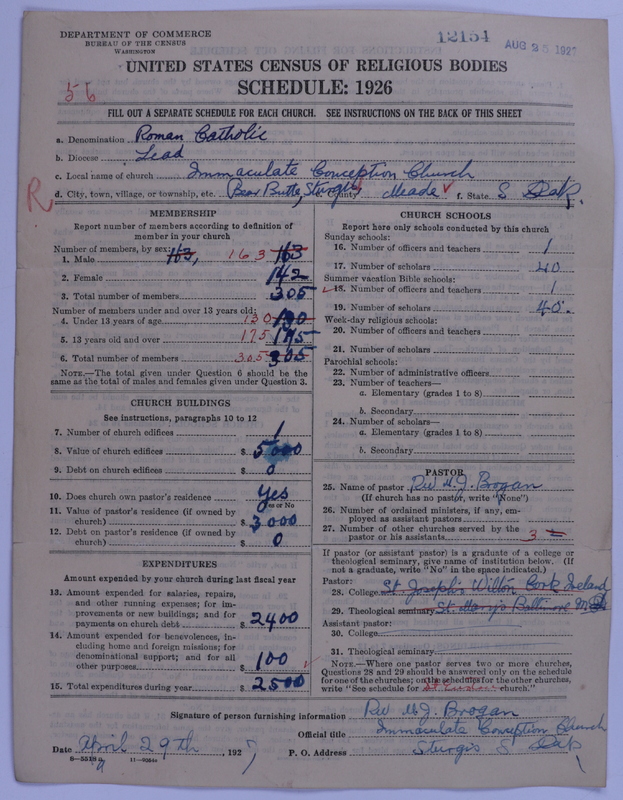 DEPARTMENT OF COMMERCE
BUREAU OF THE CENSUS
WASHINGTON
12154
AUG 25 192
UNITED STATES CENSUS OF RELIGIOUS BODIES
SCHEDULE: 1926
56
FILL OUT A SEPARATE SCHEDULE FOR EACH CHURCH. SEE INSTRUCTIONS ON THE BACK OF THIS SHEET
a. Denomination Roman Catholic
b. Diocese Lead
c. Local name of church Immaculate Conception Church
R
d. City, town, village, or township, etc. (Bear Butte, Sturgis County Meade f. State S Dak.
MEMBERSHIP
Report number of members according to definition of member in your church
Number of members, by sex:
1. Male 163, 163 163
2. Female 142
3. Total number of members 305
Number of members under and over 13 years old:
4. Under 13 years of age 130 130
5. 13 years old and over 175 175
6. Total number of members 305 305
NOTE.—The total given under Question 6 should be the
same as the total of males and females given under Question 3.
CHURCH BUILDINGS
See instructions, paragraphs 10 to 12
7. Number of church edifices 1
8. Value of church edifices $ 5000
9. Debt on church edifices $ 0
10. Does church own pastor's residence Yes
Yes or No
11. Value of pastor's residence (if owned by
church) $ 3000
12. Debt on pastor's residence (if owned by
church) $ 0
EXPENDITURES
Amount expended by your church during last fiscal year
13. Amount expended for salaries, repairs,
and other running expenses; for im-
provements or new buildings; and for
payments on church debt $ 2400
14. Amount expended for benevolences, in-
cluding home and foreign missions; for
denominational support; and for all
other purposes $ 100
15. Total expenditures during year $ 2500
CHURCH SCHOOLS
Report here only schools conducted by this church
Sunday schools:
16. Number of officers and teachers 1
17. Number of scholars 40
Summer vacation Bible schools:
18. Number of officers and teachers 1
19. Number of scholars 40.
Week-day religious schools:
20. Number of officers and teachers
21. Number of scholars
Parochial schools:
22. Number of administrative officers
23. Number of teachers—
a. Elementary (grades 1 to 8)
b. Secondary
24. Number of scholars—
a. Elementary (grades 1 to 8)
b. Secondary
PASTOR
25. Name of pastor Rev M.J. Brogan
(If church has no pastor, write "None")
26. Number of ordained ministers, if any, em-
ployed as assistant pastors
27. Number of other churches served by the
pastor or his assistants 3
If pastor (or assistant pastor) is a graduate of a college or
theological seminary, give name of institution below. (If
not a graduate, write "No" in the space indicated.)
Pastor:
28. College St Joseph's Wilton Cork Ireland
29. Theological seminary St. Mary's Baltimore Md
Assistant pastor:
30. College
31. Theological seminary
NOTE.—Where one pastor serves two or more churches,
Questions 28 and 29 should be answered only on the schedule
for one of the churches; on the schedules for the other churches,
write "See schedule for church."
Signature of person furnishing information Rev M.J. Brogan
Official title Immaculate Conception Church
Date April 29th, 1927
P. O. Address Sturgis S. Dak
8—5518a 11—9354a